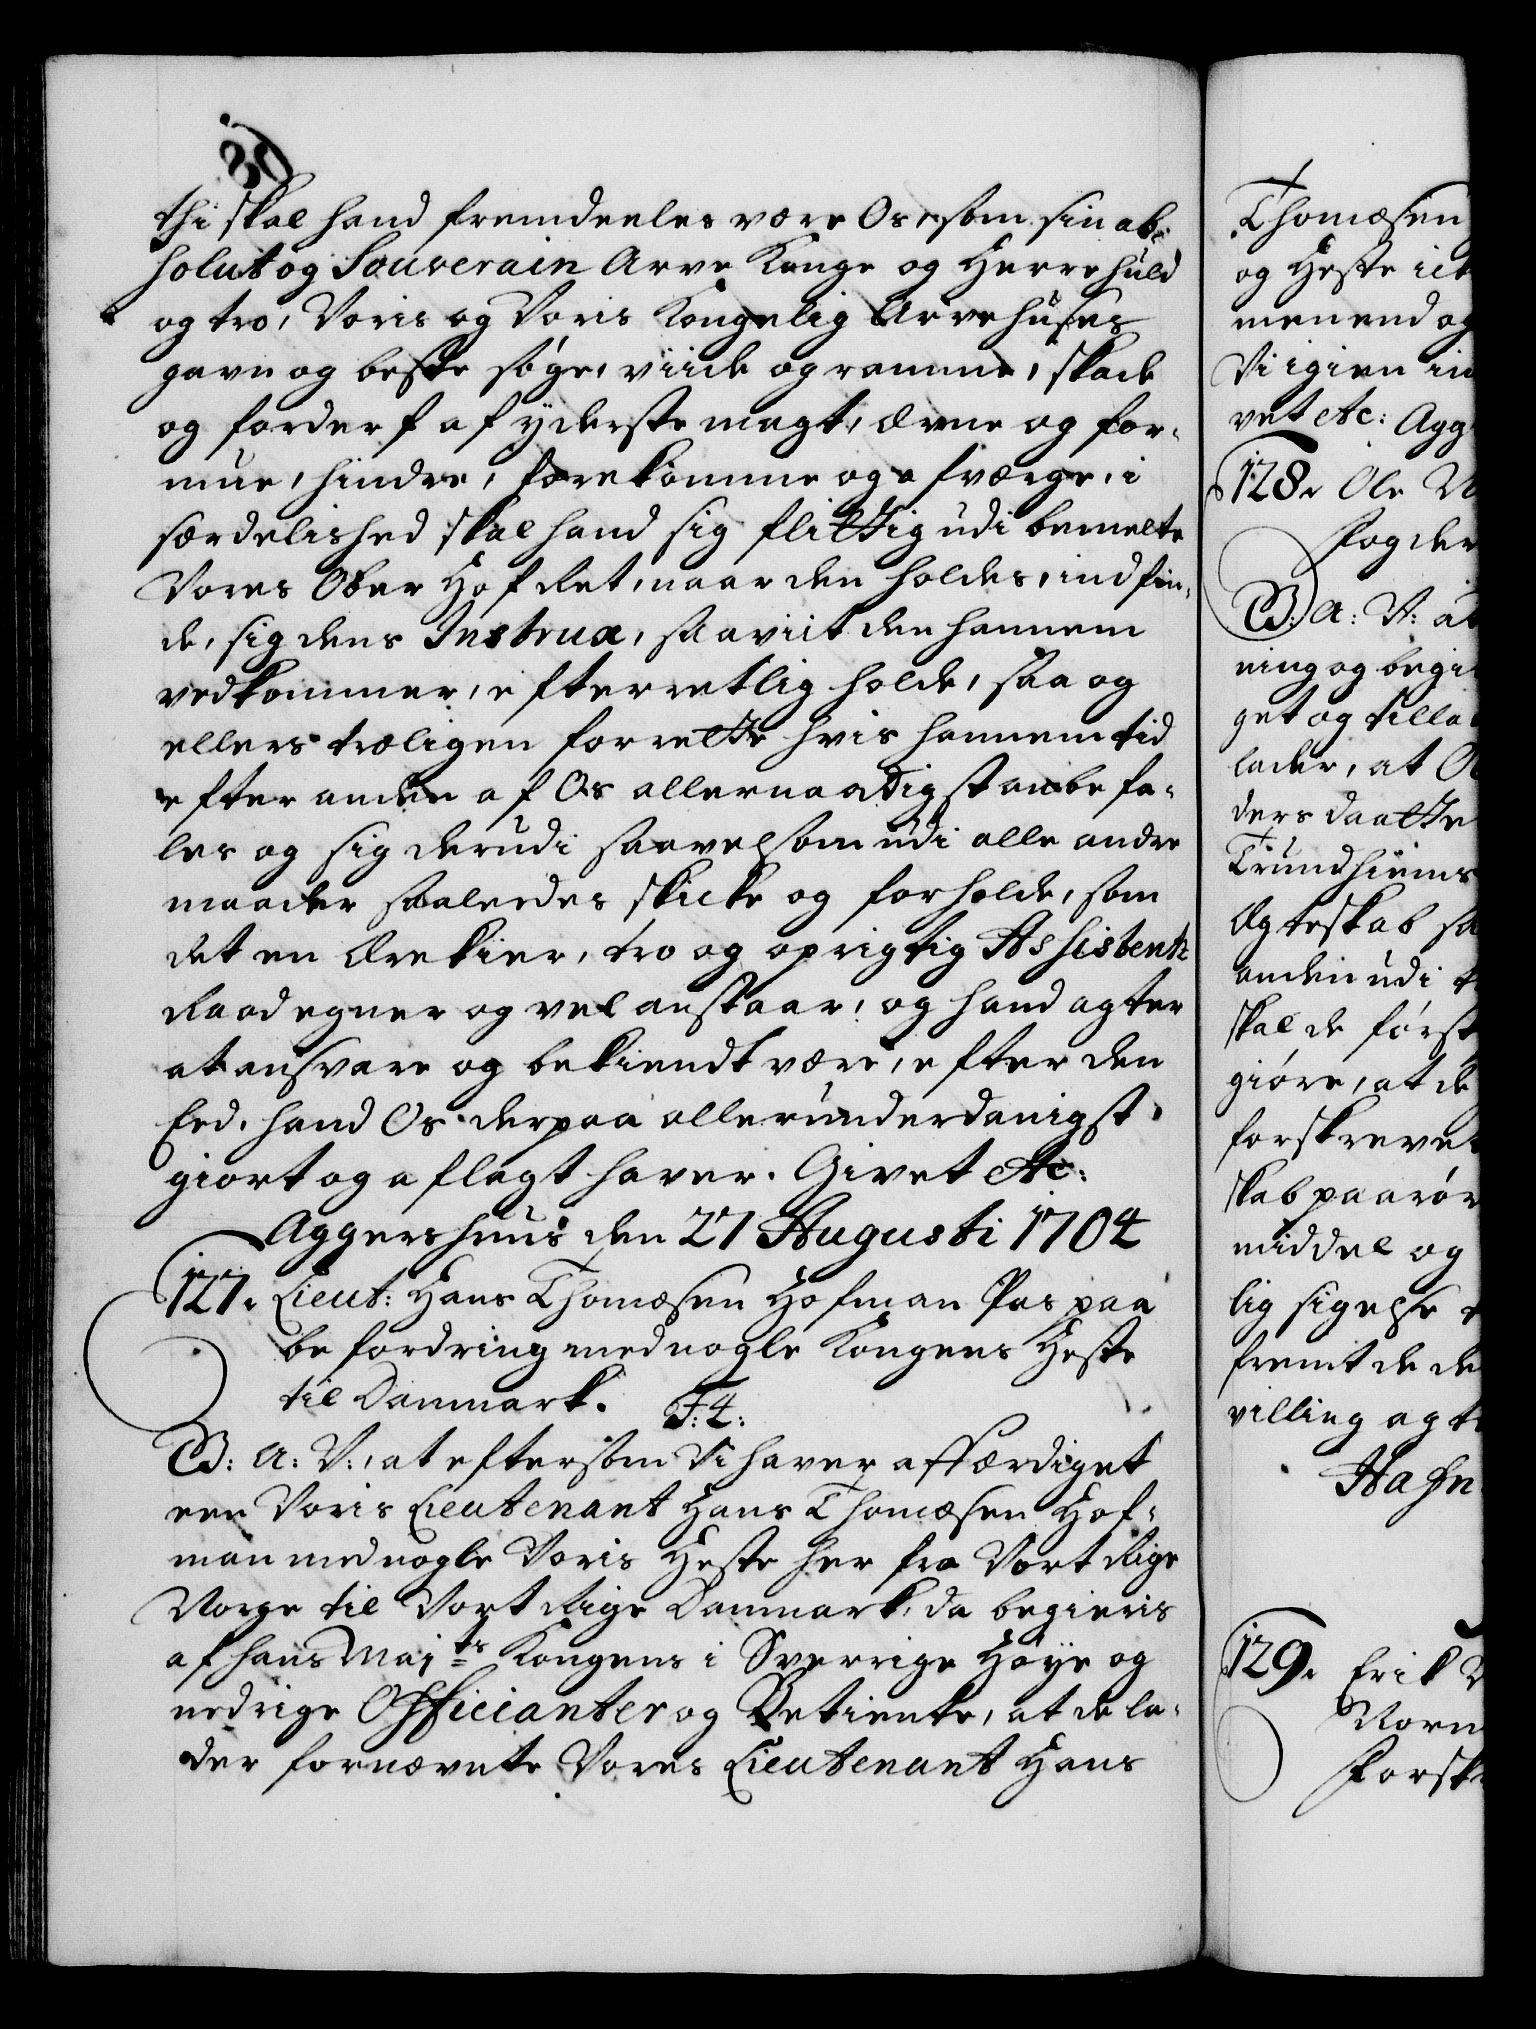 80
thi skal hand fremdeeles være Os, som sin ab-
solut og Souverain Arve Konge og Herre huld
og tro, Voris og Voris Kongelig Arvehuses
gavn og beste søge, viide og ramme, skade
og forderf af yderste magt, ævne og for-
mue, hindre, forekomme og afværge, i
særdelished skal hand sig flittig udi bemelte
Vores Ober Hof Ret, naar den holdes, indfin-
de, sig dens Instrux, saaviit den hannem
vedkommer, efterretlig holde, saa og
ellers troeligen forrette hvis hannem tid
efter anden af Os allernaadigst anbefa-
les og sig derudi saavelsom udi alle andre
maader saaledes skicke og forholde, som
det en Ærekier, tro og oprigtig Assistentz
Raad egner og vel anstaar, og hand agter
at ansvare og bekiendt være, efter den
Eed, hand Os derpaa allerunderdanigst
giort og aflagt haver. Givet etc:
Aggershuus den 27 Augusti 1704
127. Lieut: Hans Thomæsen Hofman Pas paa
befordring med nogle Kongens Heste
til Danmark. F: 4:
G: A: V:, at eftersom Vi haver affærdiget
een Voris Lieutenant Hans Thomæsen Hof-
man med nogle Voris Heste her fra Vort Rige
Norge til Vort Rige Danmark, da begieris
af hans Maj:ts Kongens i Sverrige Høye og
nedrige Officianter og Betiente, at de la-
der fornævnte Vores Lieutenant Hans
Thomæsen
og Heste ick
men end og
Vi igien in
vet etc: Agg
128. Ole
Fogder
G: A: V: at
ning og begi
get og tilla
lader, at
ders daatte
Trundhiems
Ægteskab sa
anden udi
skal de først
giøre, at de
forskreve
skab paarør
middel og
lig sigelse
fremt de de
villing agt
Hafn
129. Erik
Norn
Forsk